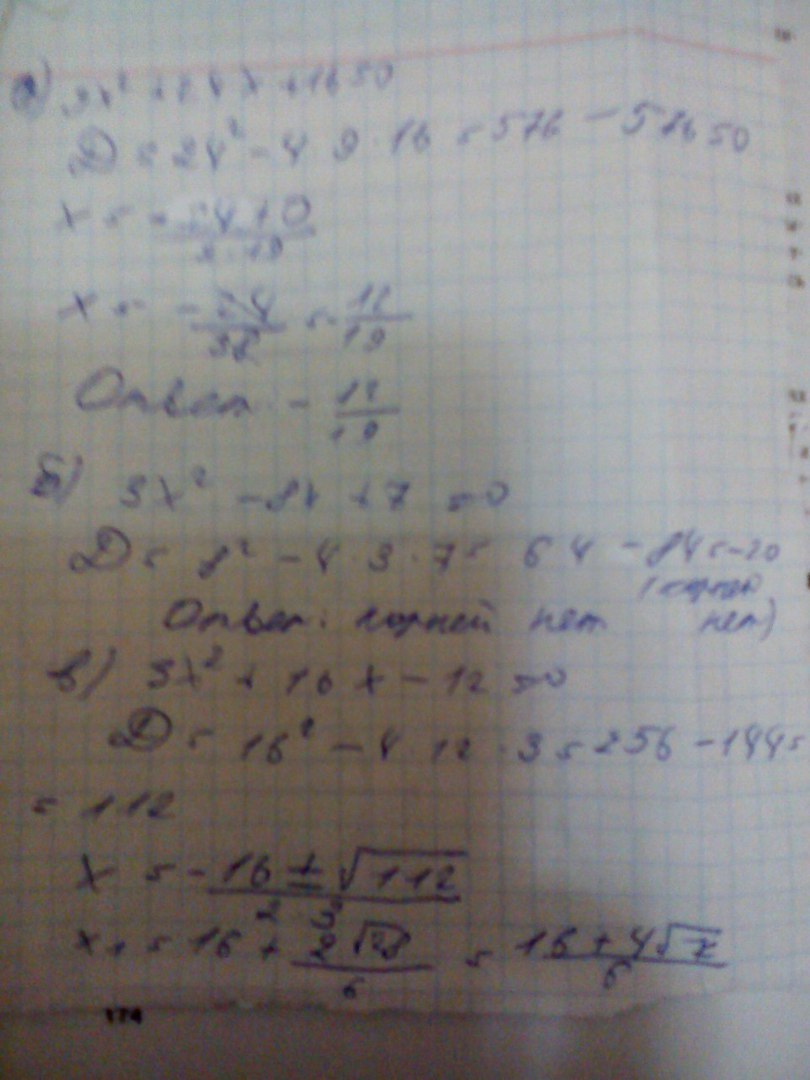 а) 9x² + 24x + 16 = 0
D = 24² - 4 · 9 · 16 = 576 - 576 = 0
x = -24 + 0 / 2 · 19
x = - 24/38 = - 12/19
Ответ: - 12/19
б) 3x² - 8x + 7 = 0
D = 8² - 4 · 3 · 7 = 64 - 84 = -20
(корней нет)
Ответ: корней нет
в) 3x² + 16x - 12 = 0
D = 16² - 4 · 12 · 3 = 256 - 144 =
= 112
x = -16 ± √112 / 2 · 3
x₁ = 16 + 2√28 / 6 = 16 + 4√7 / 6
174